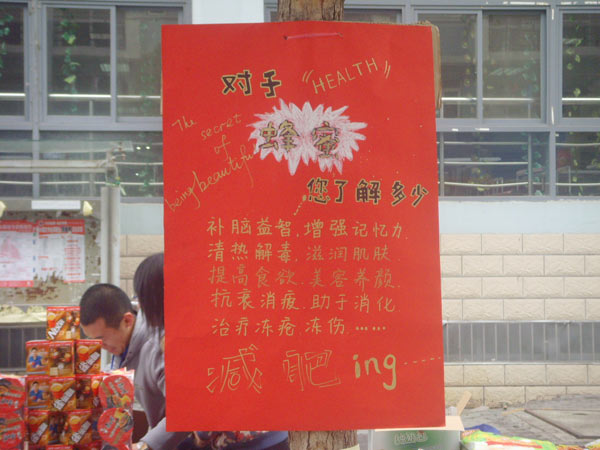 对于 "HEALTH"
The secret of being beautiful
蜂蜜
您了解多少
补脑益智.增强记忆力.
清热解毒.滋润肌肤.
提高食欲.美容养颜.
抗衰消疲.助于消化
治疗冻疮.冻伤.……
减肥ing……